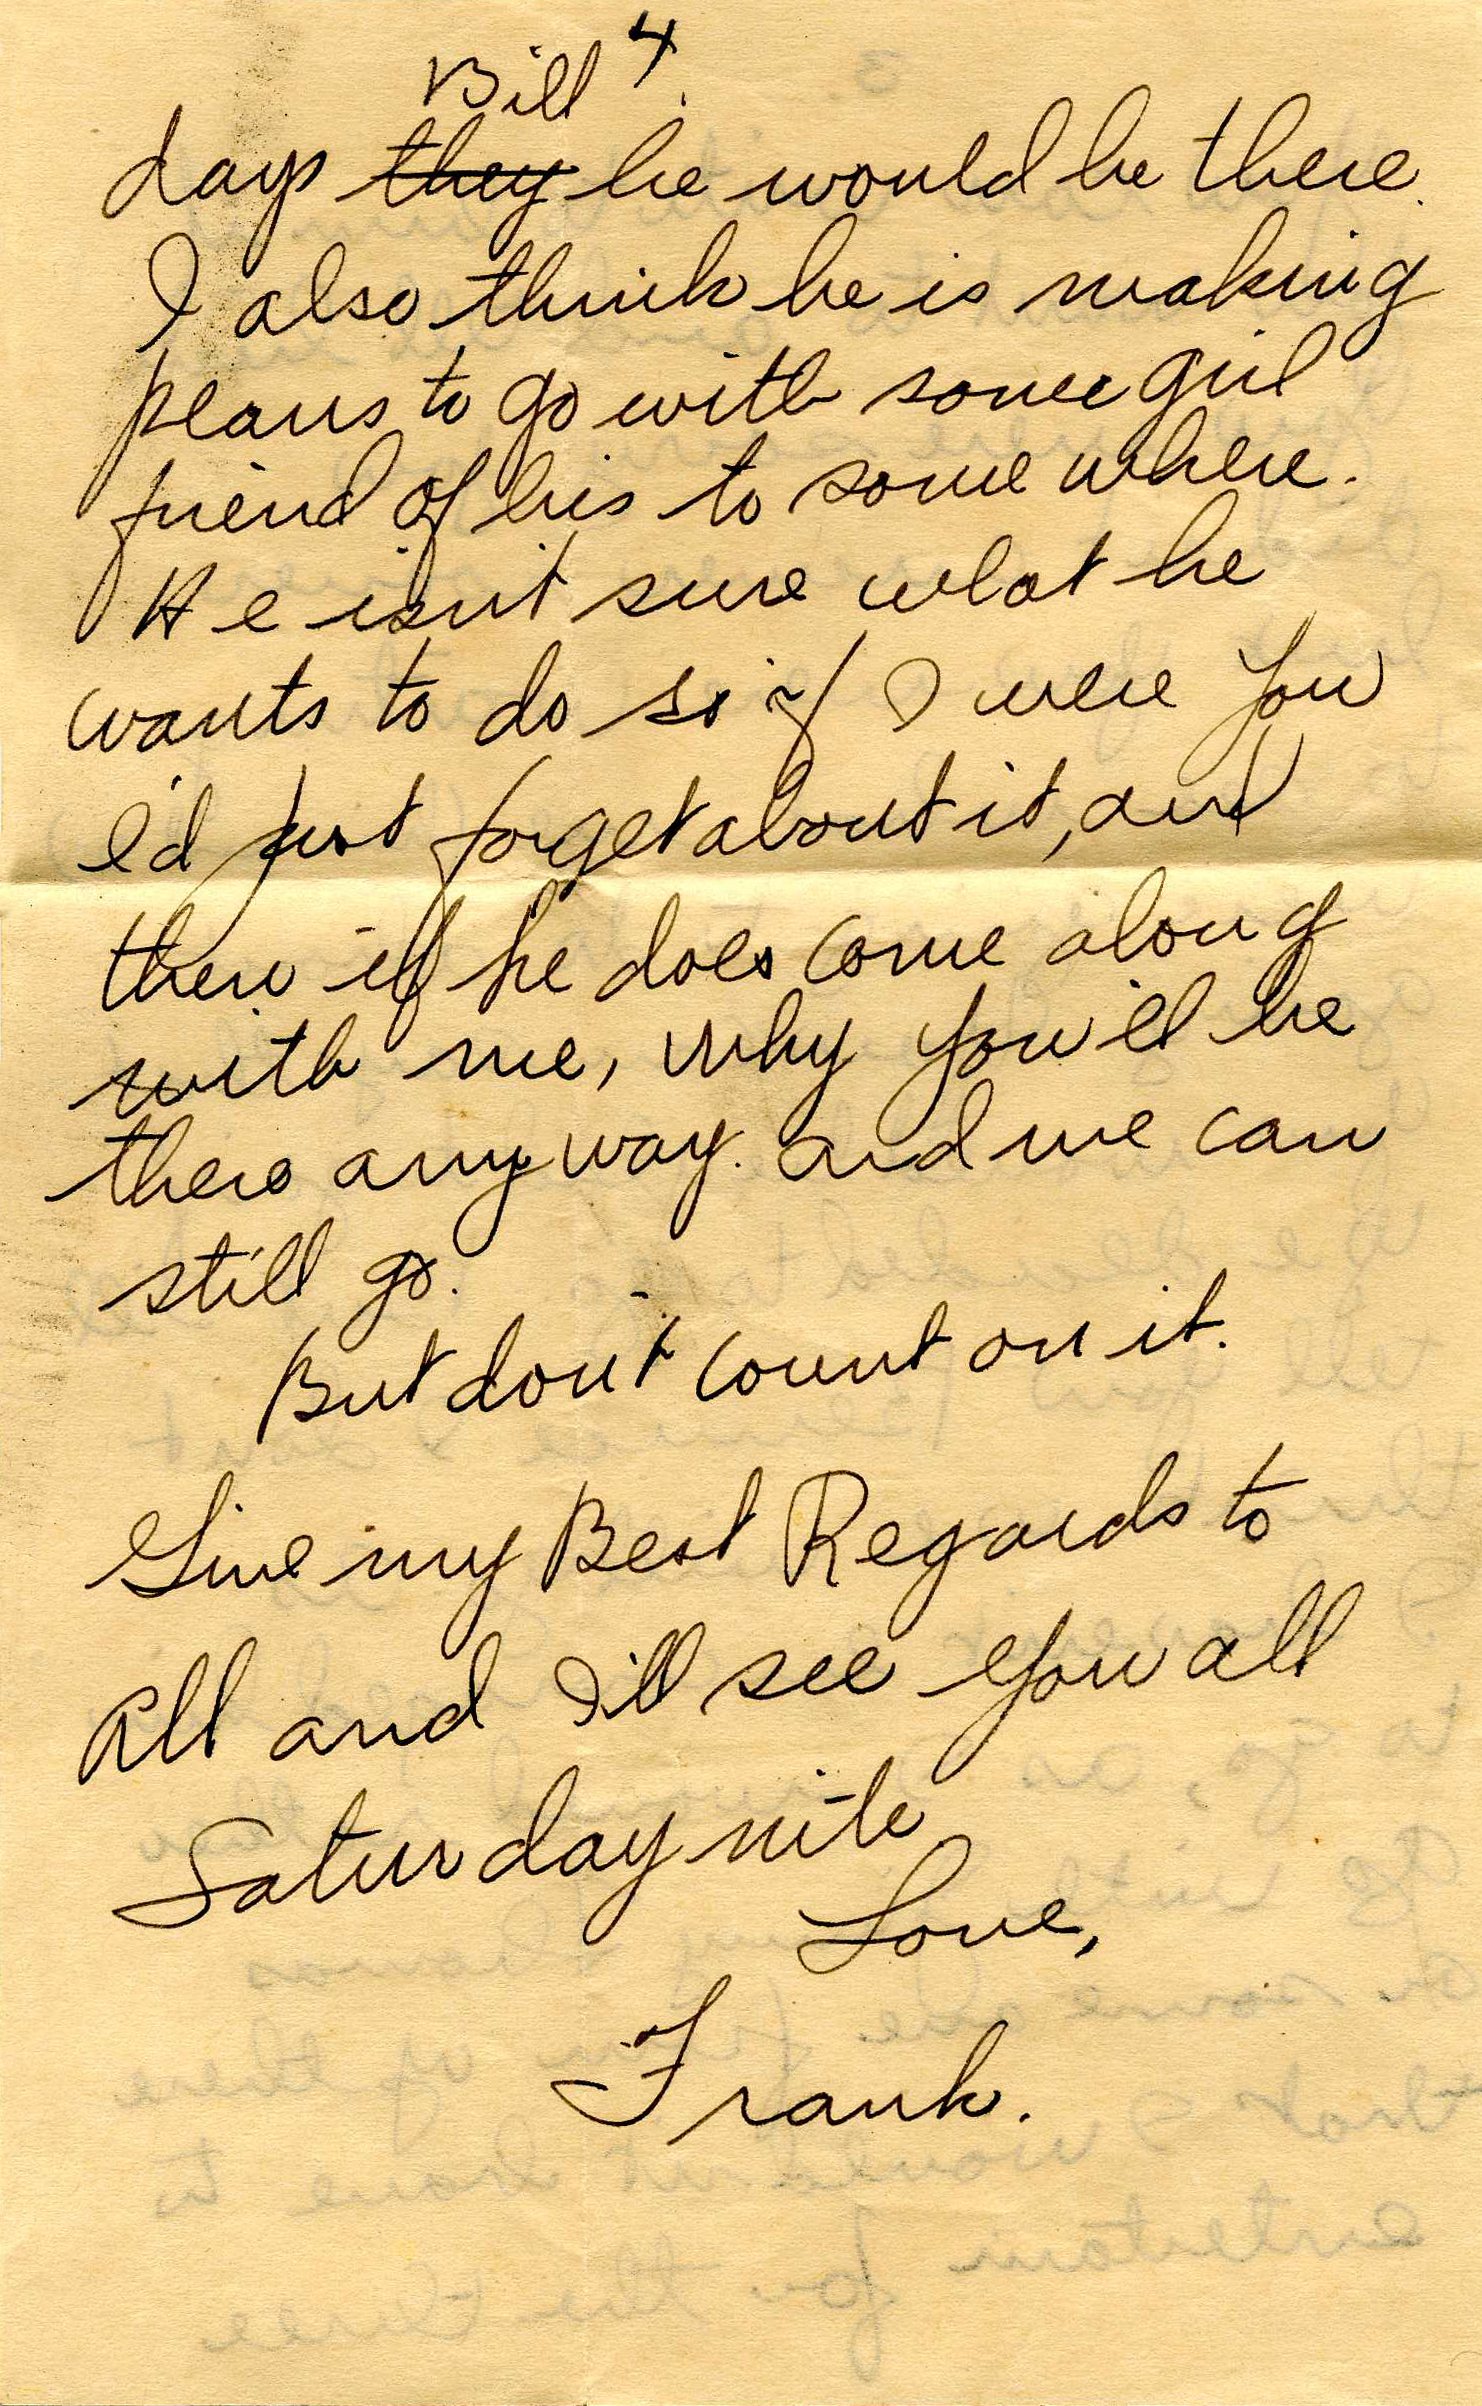 4
Bill
days ~~they~~ he would be there.
I also think he is making
plans to go with some girl
friend of his to some where.
He isn't sure what he
wants to do so if I were you
I'd just forget about it, and
then if he does come along
with me, why you'll be
there anyway. and we can
still go.
But don't count on it.
Give my Best Regards to
All and I'll see you all
Saturday nite
Love,
Frank.